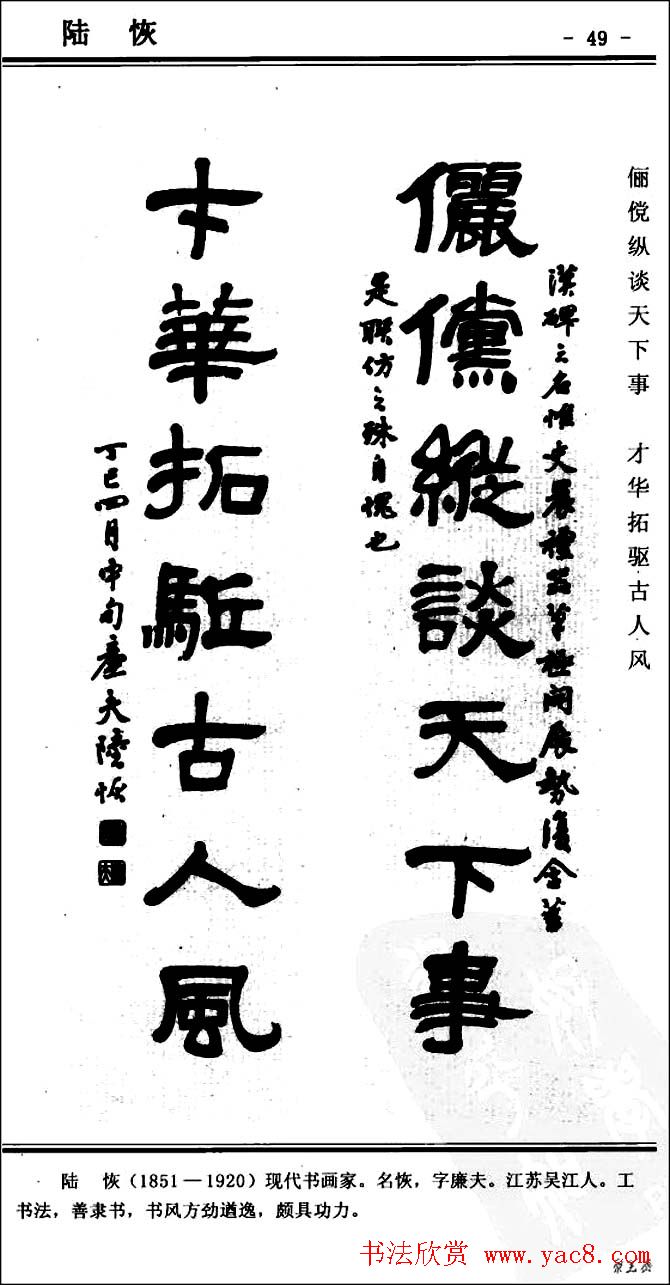 陆 恢
- 49 -
俪傥纵谈天下事 才华拓驱古人风
漢碑之名惟史晨禮器筆極開展勢復含蓄
儷儻縱談天下事
是聯仿之殊自愧也
才華拓駈古人風
丁巳四月中旬廉夫陸恢
陆 恢(1851—1920)现代书画家。名恢,字廉夫。江苏吴江人。工
书法,善隶书,书风方劲遒逸,颇具功力。
书法欣赏 www.yac8.com